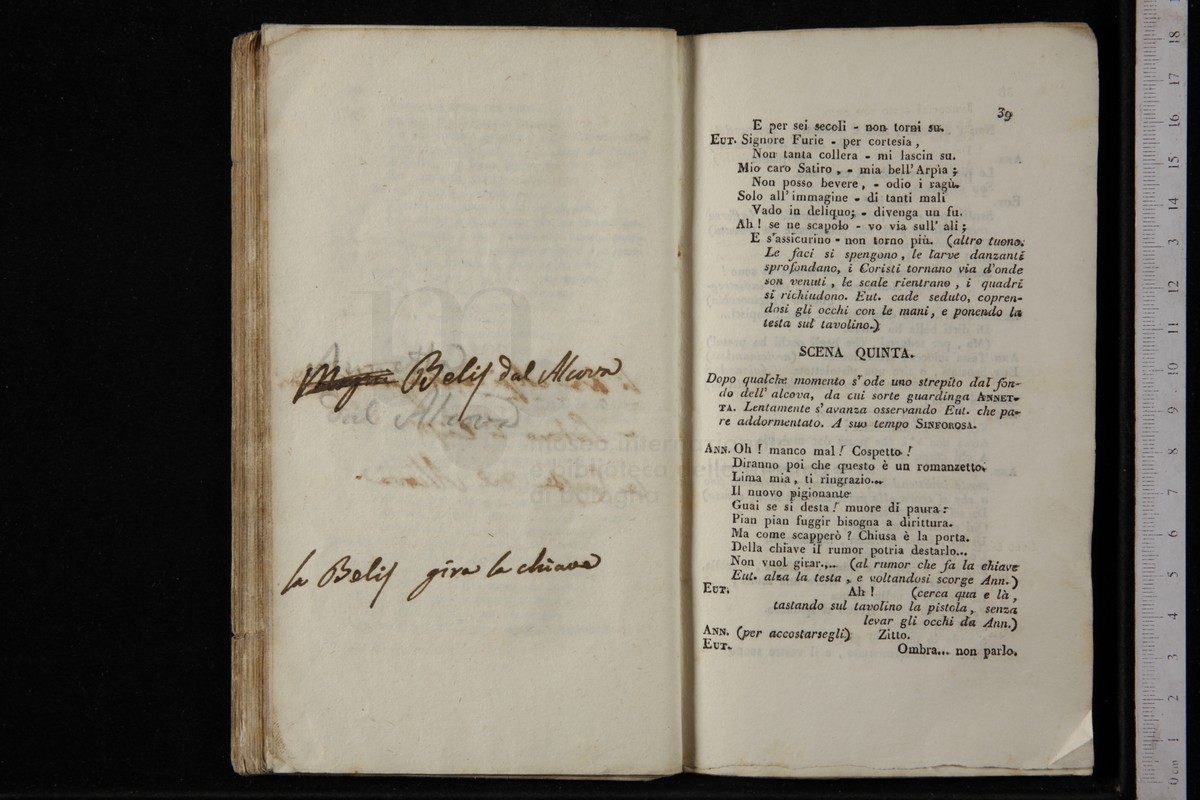 Belis dal Alcova
dal Alcova
la Belis gira la chiave
museo inter
e biblioteca della
di bologna
39
E per sei secoli - non torni su.
EUT. Signore Furie - per cortesia,
Non tanta collera - mi lascin su.
Mio caro Satiro, - mia bell' Arpia;
Non posso bevere, - odio i ragù.
Solo all' immagine - di tanti mali
Vado in deliquo; - divenga un fu.
Ah! se ne scapolo - vo via sull' ali;
E s'assicurino - non torno più. (altro tuono.
Le faci si spengono, le larve danzanti
sprofondano, i Coristi tornano via d'onde
son venuti, le scale rientrano, i quadri
si richiudono. Eut. cade seduto, copren-
dosi gli occhi con le mani, e ponendo la
testa sul tavolino.)
SCENA QUINTA.
Dopo qualche momento s'ode uno strepito dal fon-
do dell' alcova, da cui sorte guardinga ANNET-
TA. Lentamente s'avanza osservando Eut. che pa-
re addormentato. A suo tempo SINFOROSA.
ANN. Oh! manco mal! Cospetto!
Diranno poi che questo è un romanzetto.
Lima mia, ti ringrazio...
Il nuovo pigionante
Guai se si desta! muore di paura:
Pian pian fuggir bisogna a dirittura.
Ma come scapperò? Chiusa è la porta.
Della chiave il rumor potria destarlo...
Non vuol girar.... (al rumor che fa la chiave
Eut. alza la testa, e voltandosi scorge Ann.)
EUT. Ah! (cerca qua e là,
tastando sul tavolino la pistola, senza
levar gli occhi da Ann.)
ANN. (per accostarsegli) Zitto.
EUT. Ombra... non parlo.